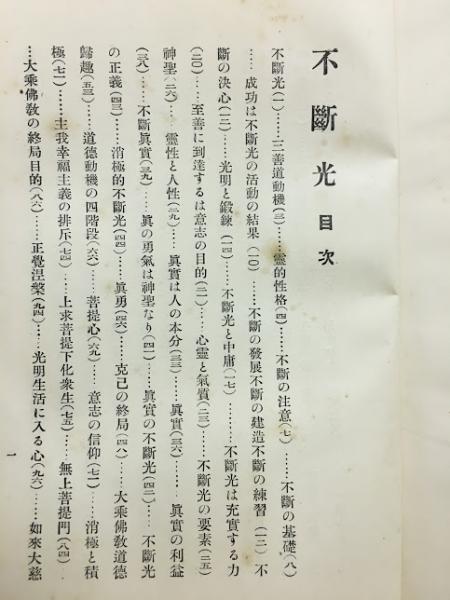 不斷光 目次
不斷光(一)……三善道動機(三)……靈的性格(四)……不斷の注意(七)……不斷の基礎(八)
……成功は不斷光の活動の結果(一〇)……不斷の發展不斷の建造不斷の練習(一二)不
斷の決心(一三)……光明と鍛錬(一四)……不斷光と中庸(一七)……不斷光は充實する力
(二〇)……至善に到達するは意志の目的(二一)……心靈と氣質(二三)……不斷光の要素(二五)
神聖(二六)……靈性と人性(二九)……眞實は人の本分(三三)……眞實(三六)……眞實の利益
(三八)……不斷眞實(三九)……眞の勇氣は神聖なり(四一)……眞實の不斷光(四二)……不斷光
の正義(四三)……消極的不斷光(四四)……眞勇(四六)……克己の終局(四八)……大乘佛敎道德
歸趣(五三)……道德動機の四階段(六六)……菩提心(六九)……意志の信仰(七一)……消極と積
極(七二)……主我幸福主義の排斥(七四)……上求菩提下化衆生(七五)……無上菩提門(八四)
……大乘佛敎の終局目的(八六)……正覺涅槃(九四)……光明生活に入る心(九六)……如來大慈
一